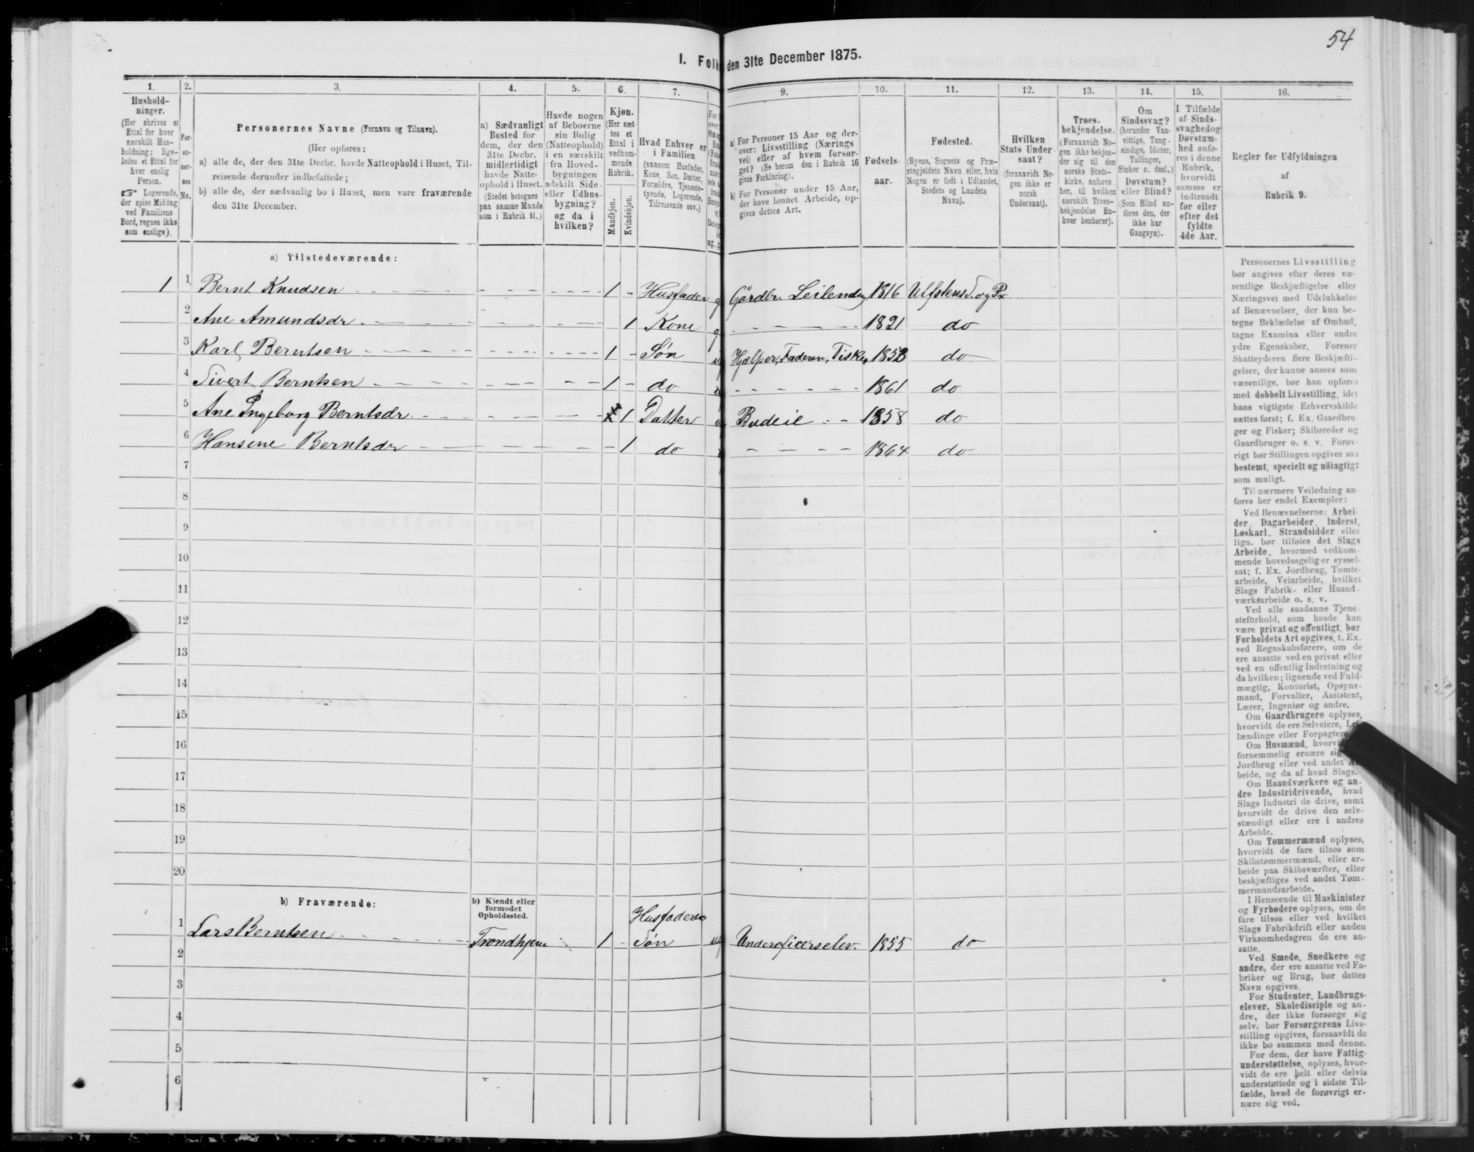 54
I. Folk
den 31te December 1875.
1. 2. 3. 4. 5. 6. 7. 9. 10. 11. 12. 13. 14. 15. 16.
Hushold-
ninger.
(Her skrives et
Ettal for hver
særskilt Hus-
holdning; lige-
ledes et Ettal for
hver enslig
Person.
☞ Logerende,
der spise Middag
ved Familiens
Bord, regnes ikke
som enslige).
Per-
so-
ner-
nes
No.
Personernes Navne (Fornavn og Tilnavn).
(Her opføres:
a) alle de, der den 31te Decbr. havde Natteophold i Huset, Til-
reisende derunder indbefattede;
b) alle de, der sædvanlig bo i Huset, men vare fraværende
den 31te December.
a) Sædvanligt
Bosted for
dem, der den
31te Decbr.
midlertidigt
havde Natte-
ophold i Huset.
(Stedet betegnes
paa samme Maade
som i Rubrik 11.)
Havde nogen
af Beboerne
sin Bolig
(Natteophold)
i en særskilt
fra Hoved-
bygningen
adskilt Side-
eller Udhus-
bygning?
og da i
hvilken?
Kjøn.
(Her sæt-
tes et
Ettal i
vedkom-
mende
Rubrik.
Mandkjøn.
Kvindekjøn.
Hvad Enhver er
i Familien
(saasom Husfader,
Kone, Søn, Datter,
Forældre, Tjeneste-
tyende, Logerende,
Tilreisende osv.)
a) For Personer 15 Aar og der-
over: Livsstilling (Nærings
vei) eller af hvem forsør-
get? (Se herom den i Rubrik 16
givne Forklaring).
b) For Personer under 15 Aar,
der have lønnet Arbeide, op-
gives dettes Art.
Fødsels-
aar.
Fødested.
(Byens, Sognets og Præ-
stegjeldets Navn eller, hvis
Nogen er født i Udlandet,
Stedets og Landets
Navn).
Hvilken
Stats Under
saat?
(forsaavidt No-
gen ikke er
norsk
Undersaat).
Troes-
bekjendelse.
(Forsaavidt No-
gen ikke bekjen-
der sig til den
norske Stats-
kirke, anføres
her, til hvilken
særskilt Troes-
bekjendelse En-
hver henhører).
Om
Sindssvag?
(herunder Van-
vittige, Tung-
sindige, Idioter,
Tullinger,
Sinker o. desl.)
Døvstum?
eller Blind?
(Som Blind an-
føres den, der
ikke har
Gangsyn).
I Tilfælde
af Sinds-
svaghedog
Døvstum-
hed anfø-
res i denne
Rubrik,
hvorvidt
samme er
indtraadt
før eller
efter det
fyldte
4de Aar.
Regler for Udfyldningen
af
Rubrik 9.
a) Tilstedeværende:
1 1 Bernt Knudsen 1 Husfader Gårdbr. Leilending 1816
2 Ane Amundsdr 1 Kone 1821 do
3 Karl Berntsen 1 Søn Hjælper Faderen, 1853 do
4 Sivert Berntsen 1 do 1861 do
5 Ane Ingeborg Berntsdr 1 Datter Budeie 1858 do
6 Hansine Berntsdr 1 do 1864 do
7
8
9
10
11
12
13
14
15
16
17
18
19
20
b) Fraværende:
b) Kjendt eller
formodet
Opholdssted.
Husfaderens
1 Lars Berntsen Trondhjem 1 Søn Underoficerselev 1855 do
2
3
4
5
6
Personernes Livsstilling
bør angives efter deres væ-
sentlige Beskjæftigelse eller
Næringsvei med Udelukkelse
af Benævnelser, der kun be-
tegne Beklædelse af Ombud,
tagne Examina eller andre
ydre Egenskaber. Forener
Skatteyderen flere Beskjæfti-
gelser, der kunne ansees som
væsentlige, bør han opføres
med dobbelt Livsstilling, idet
hans vigtigste Erhvervskilde
sættes først; f. Ex. Gaardbru-
ger og Fisker; Skibsreder og
Gaardbruger o. s. v. Forøv-
rigt bør Stillingen opgives saa
bestemt, specielt og nøiagtigt
som muligt.
Til nærmere Veiledning an-
føres her endel Exempler:
Ved Benævnelserne: Arbei-
der, Dagarbeider, Inderst,
Løskarl, Strandsidder eller
lign. bør tilføies det Slags
Arbeide, hvormed vedkom-
mende hovedsagelig er syssel-
sat; f. Ex. Jordbrug, Tomte-
arbeide, Veiarbeide, hvilket
Slags Fabrik- eller Haand-
værksarbeide o. s. v.
Ved alle saadanne Tjene-
steforhold, som baade kan
være privat og offentligt, bør
Forholdets Art opgives, t. Ex.
ved Regnskabsførere, om de
ere ansatte ved en privat eller
ved en offentlig Indretning og
da hvilken; lignende ved Fuld-
mægtig, Kontorist, Opsyns-
mand, Forvalter, Assistent,
Lærer, Ingeniør og andre.
Om Gaardbrugere oplyses,
hvorvidt de ere Selveiere, Lei-
lændinge eller Forpagtere.
Om Husmænd, hvorvidt
fornemmelig ernære sig
Jordbrug eller ved andet Ar-
beide, og da af hvad Slags.
Om Haandværkere og an-
dre Industridrivende, hvad
Slags Industri de drive, samt
hvorvidt de drive den selv-
stændigt eller ere i andres
Arbeide.
Om Tømmermænd oplyses,
hvorvidt de fare tilsøs som
Skibstømmermænd, eller ar-
beide paa Skibsværfter, eller
beskjæftiges ved andet Tøm-
mermandsarbeide.
I Henseende til Maskinister
og Fyrbødere oplyses, om de
fare tilsøs eller ved hvilket
Slags Fabrikdrift eller anden
Virksomhedsgren de ere an-
satte.
Ved Smede, Snedkere og
andre, der ere ansatte ved Fa-
briker og Brug, bør dettes
Navn opgives.
For Studenter, Landbrugs-
elever, Skoledisciple og an-
dre, der ikke forsørge sig
selv, bør Forsørgerens Livs-
stilling opgives, forsaavidt de
ikke bo sammen med denne.
For dem, der have Fattig-
understøttelse, oplyses, hvor-
vidt de ere helt eller delvis
understøttede og i sidste Til-
fælde, hvad de forøvrigt er-
nære sig ved.